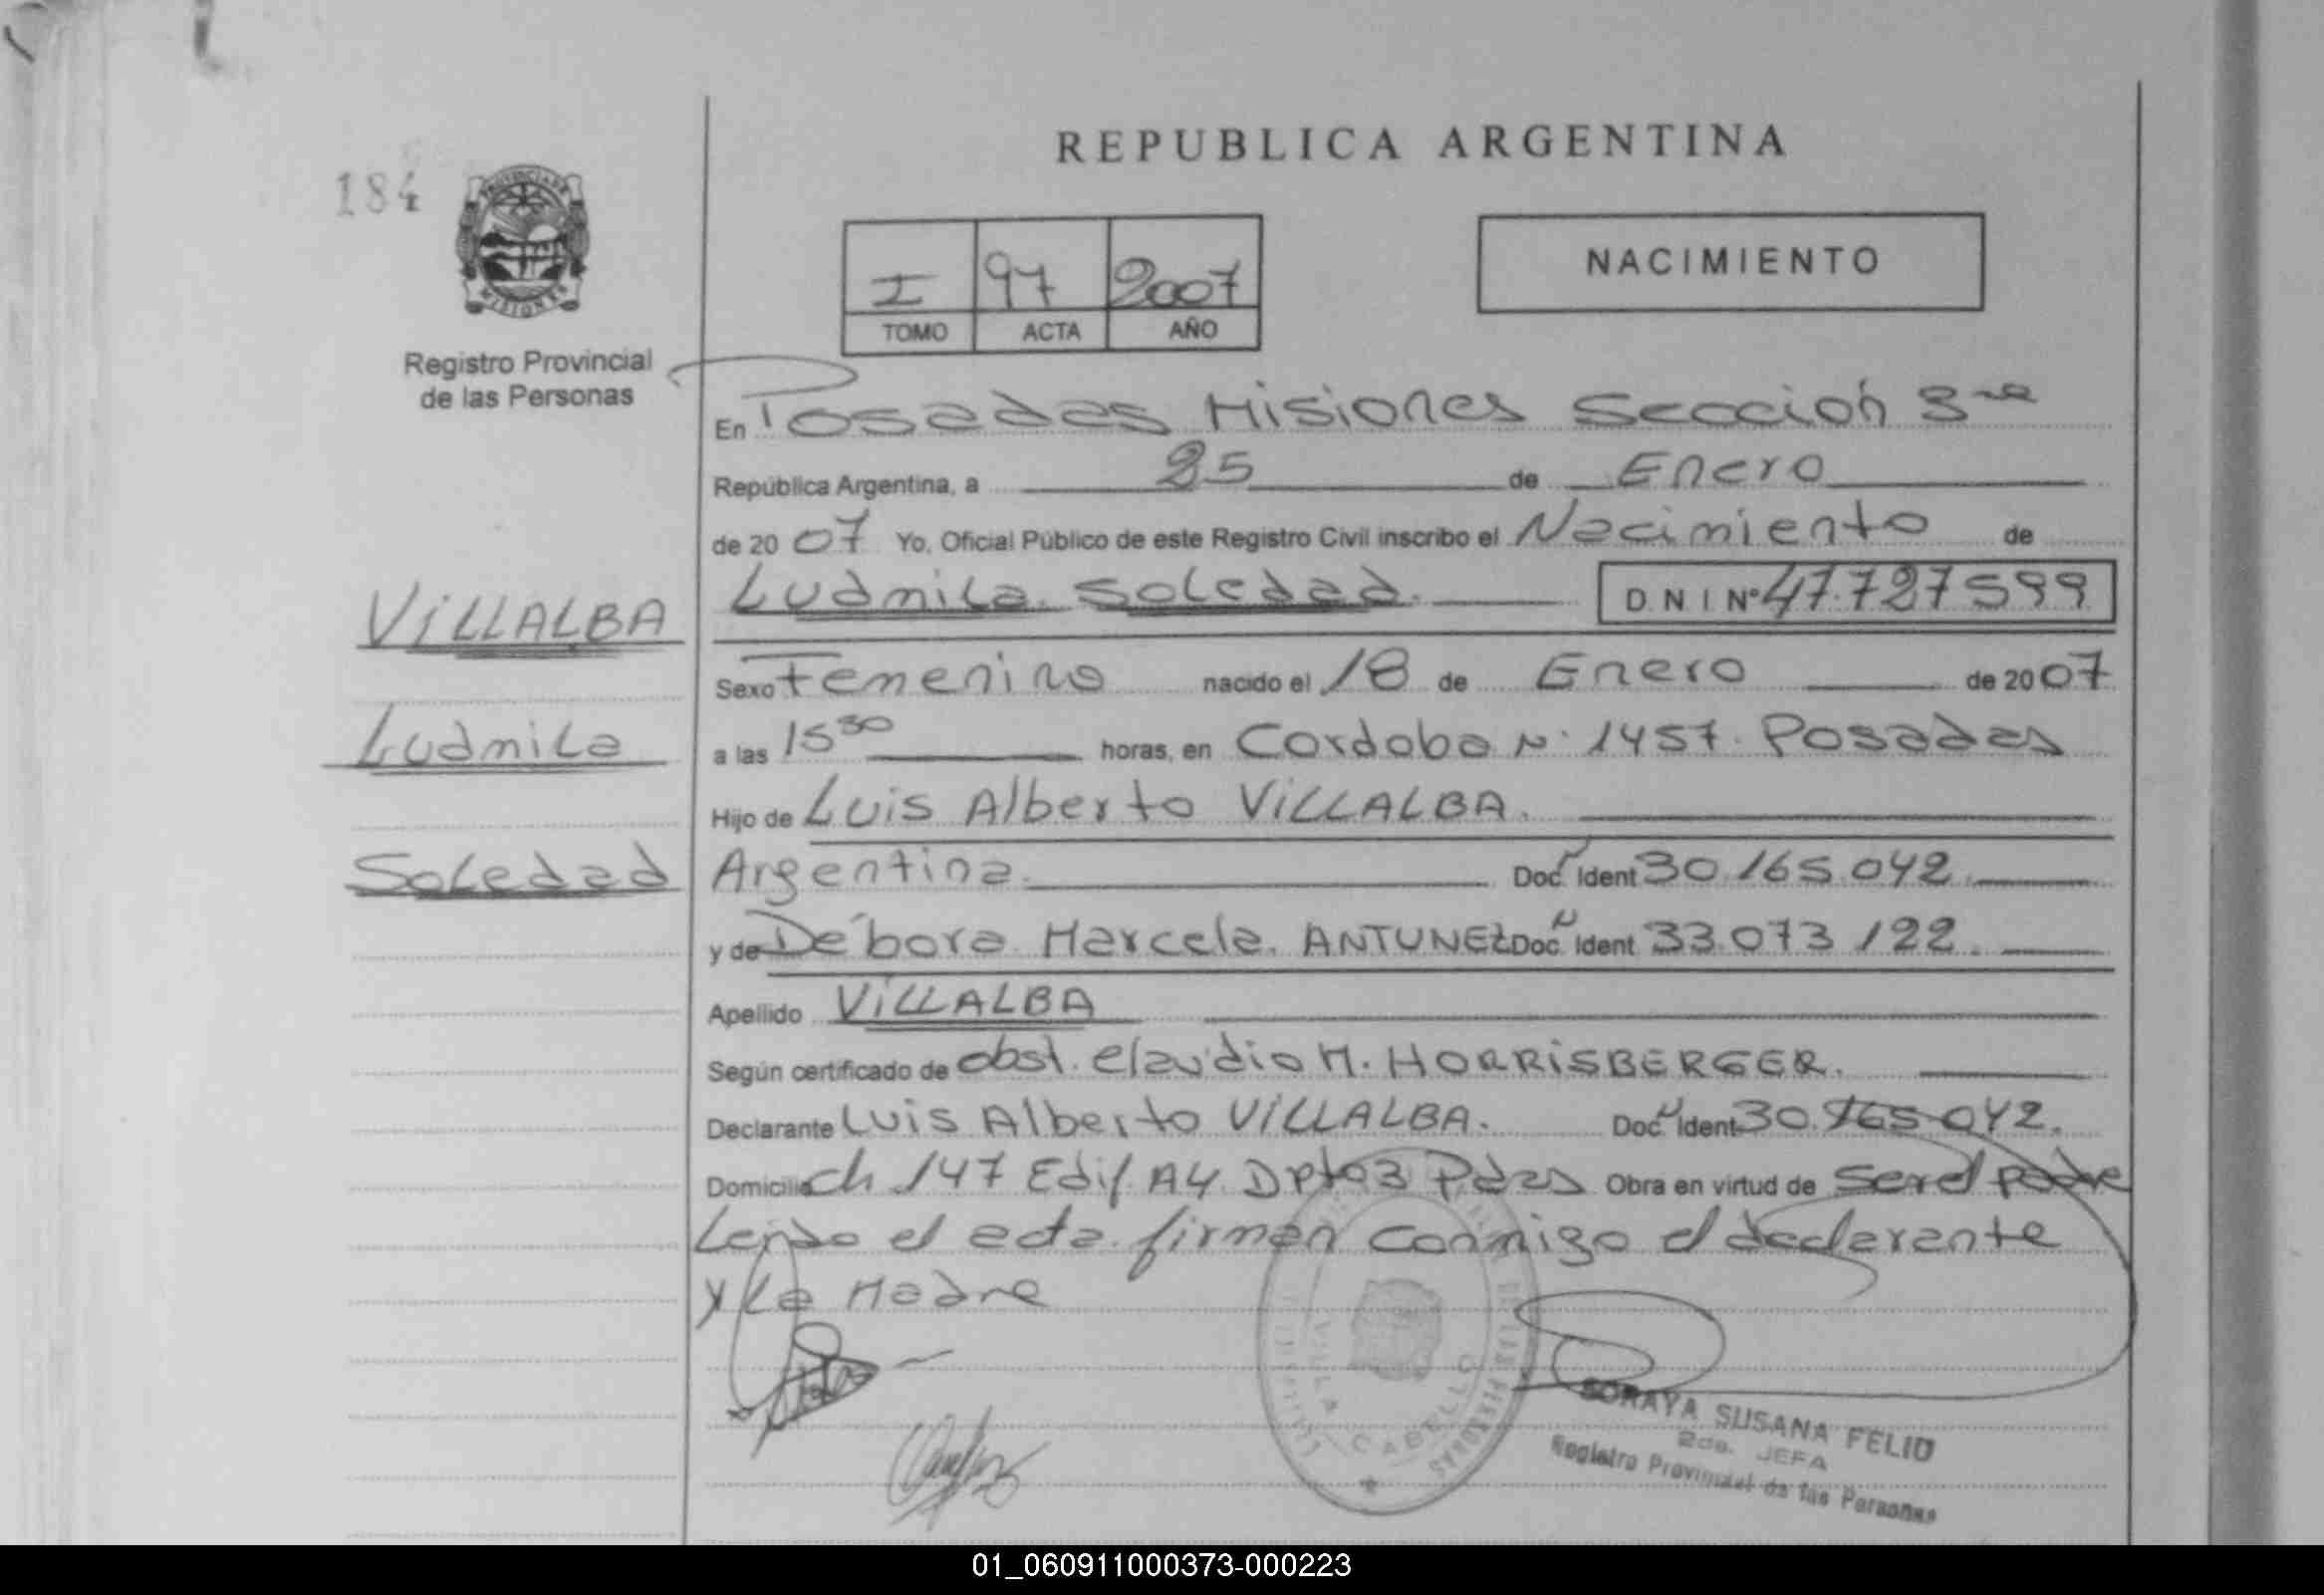 REPUBLICA ARGENTINA
184
PROVINCIA DE MISIONES
Registro Provincial
de las Personas
I 97 2007
TOMO ACTA AÑO
NACIMIENTO
En Posadas Misiones Sección 3ra
República Argentina, a 25 de Enero
de 2007 Yo, Oficial Público de este Registro Civil inscribo el Nacimiento de
Ludmila Soledad. DNI Nº 47.727599
VILLALBA
Ludmila
Soledad
Sexo Femenino nacido el 18 de Enero de 2007
a las 15 30 horas, en Cordoba Nº 1457. Posadas
Hijo de Luis Alberto VILLALBA.
Argentina Doc. Ident 30.165.042.
y de Débora Marcela ANTUNEZ Doc. Ident 33.073.122.
Apellido VILLALBA
Según certificado de obst. Claudio M. HORRISBERGER.
Declarante Luis Alberto VILLALBA. Doc. Ident 30.165.042.
Domicilio Ch 147 Edif A4 Dpto 3 Pdas Obra en virtud de ser el padre
Leido el acta firman conmigo el declarante
y la Madre
VILLA CABELLO
SORAYA SUSANA FELIU
2da. JEFA
Registro Provincial de las Personas
01_060911000373-000223